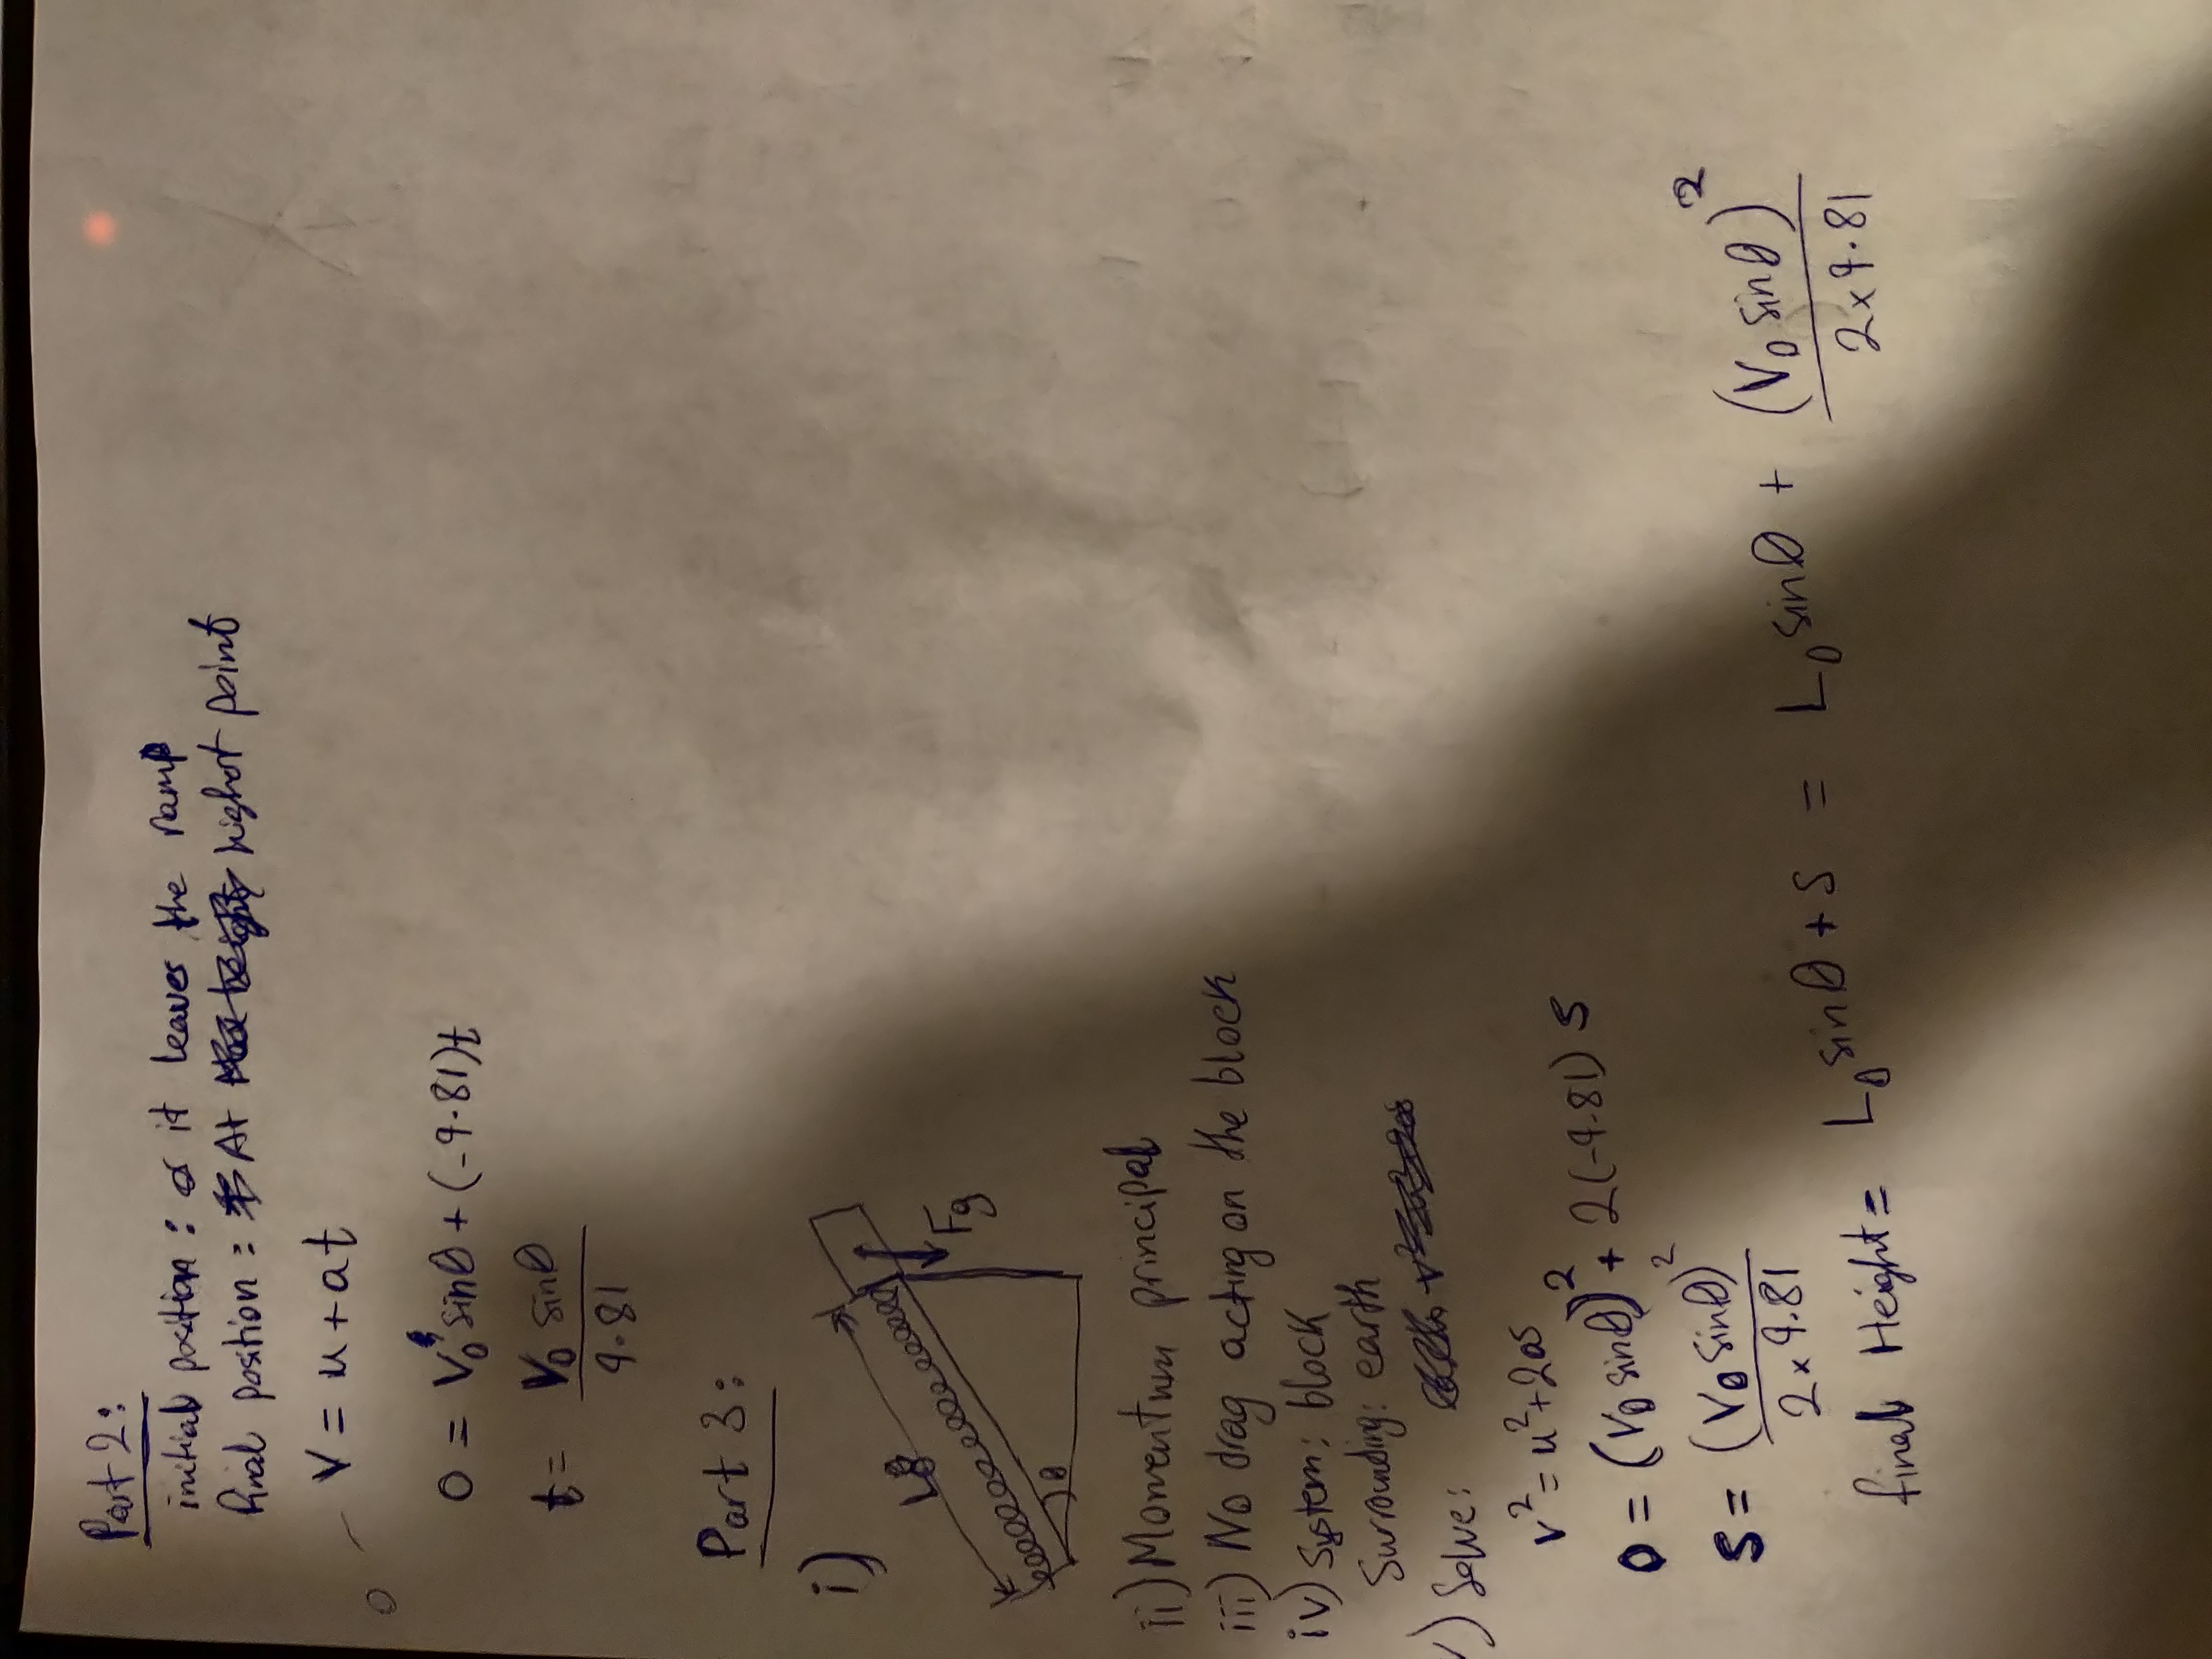 Part 2:
initial position : as it leaves the ramp
final position : At highest point
V = u + at
0 = V₀ sinθ + (-9.81)t
t = V₀ sinθ / 9.81
Part 3:
i)
L₀
Fg
θ
ii) Momentum principal
iii) No drag acting on the block
iv) System: block
Surrounding: earth
v) Solve:
v² = u² + 2as
0 = (V₀ sinθ)² + 2(-9.81) s
s = (V₀ sinθ)² / 2 × 9.81
final Height = L₀ sinθ + s = L₀ sinθ + (V₀ sinθ)² / 2 × 9.81